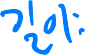 길이: